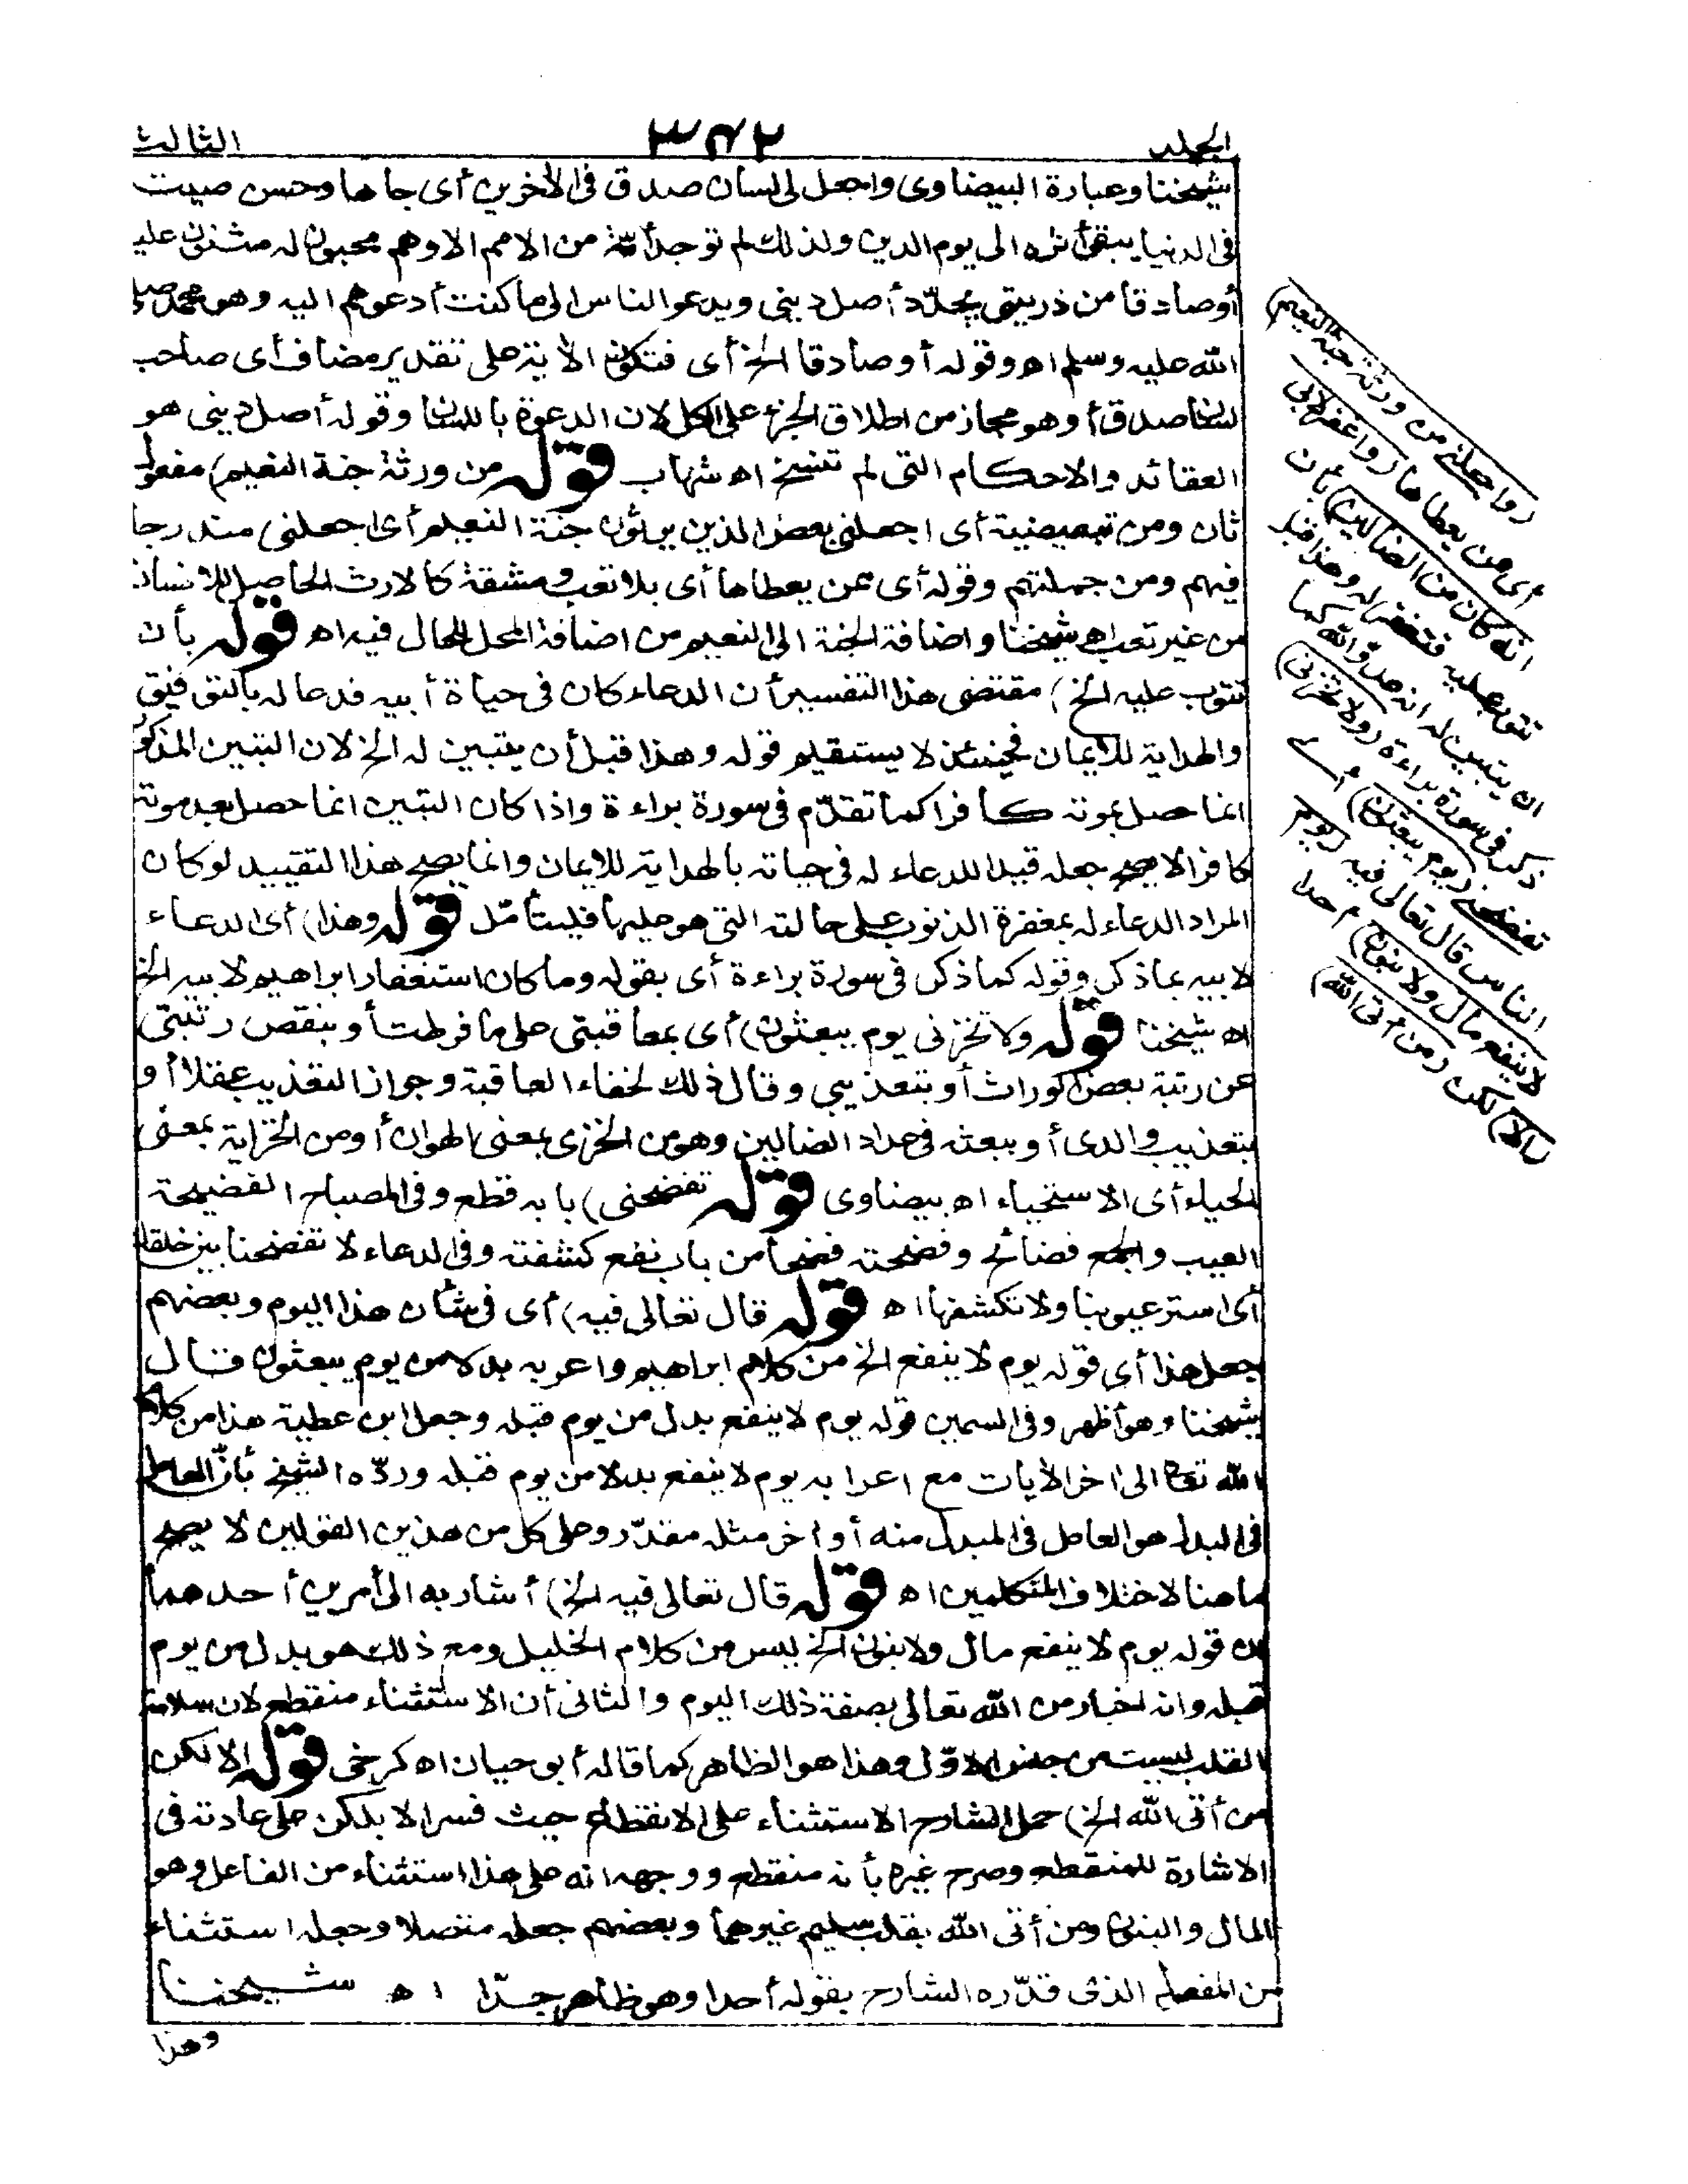 الجلد
٣٤٢
الثالث
شيخنا وعبارة البيضاوى واجعل لى لسان صدق فى الآخرين أى جاها وحسن صيت
فى الدنيا يبقى أثره الى يوم الدين ولذلك لم توجد أمّة من الامم الا وهم محبون له مثنون عليه
أو صادقا من ذريتى يجدّد أصل دينى ويدعو الناس الى ما كنت أدعوهم اليه وهو محمد صلى
الله عليه وسلم اه وقوله أو صادقا الخ أى فتكون الآية على تقدير مضاف أى صاحب
لسان صدق أو هو مجاز من اطلاق الجزء على الكل لان الدعوة باللسان وقوله أصل دينى هو
العقائد والاحكام التى لم تنسخ اه شهاب قوله من ورثة جنة النعيم) مفعول
ثان ومن تبعيضية أى اجعلنى بعض الذين يرثون جنة النعيم أى اجعلنى مندرجا
فيهم ومن جملتهم وقوله أى ممن يعطاها أى بلا تعب ومشقة كالارث الحاصل للانسان
من غير تعب اه شيخنا واضافة الجنة الى النعيم من اضافة المحل للحال فيه اه قوله بأن
تتوب عليه الخ) مقتضى هذا التفسير أن الدعاء كان فى حياة أبيه فدعا له بالتوفيق
والهداية للايمان فحينئذ لا يستقيم قوله وهذا قبل أن يتبين له الخ لان التبين المذكور
انما حصل بموته كافرا كما تقدّم فى سورة براءة واذا كان التبين انما حصل بعد موته
كافرا لا يصح جعله قيدا للدعاء له فى حياته بالهداية للايمان وانما يصح هذا التقييد لو كان
المراد الدعاء له بمغفرة الذنوب على حالته التى هو عليها فليتأمّل قوله وهذا) أى الدعاء
لابيه بما ذكر وقوله كما ذكر فى سورة براءة أى بقوله وما كان استغفار ابراهيم لابيه الخ
اه شيخنا قوله ولا تخزنى يوم يبعثون) أى بمعاقبتى على ما فرطت أو بنقص رتبتى
عن رتبة بعض الوراث أو بتعذيبى وقال ذلك لخفاء العاقبة وجواز التعذيب عقلا أو
بتعذيب والدى أو ببعثه فى عداد الضالين وهو من الخزى بمعنى الهوان أو من الخزاية بمعنى
الحياء أى الاستحياء اه بيضاوى قوله تفضحنى) بابه قطع وفى المصباح الفضيحة
العيب والجمع فضائح وفضحته فضحا من باب نفع كشفته وفى الدعاء لا تفضحنا بين خلقك
أى استر عيوبنا ولا تكشفها اه قوله قال تعالى فيه) أى فى شأن هذا اليوم وبعضهم
جعل هذا أى قوله يوم لا ينفع الخ من كلام ابراهيم واعربه بدلا من يوم يبعثون قال
شيخنا وهو أظهر وفى السمين قوله يوم لا ينفع بدل من يوم قبله وجعل ابن عطية هذا من كلام
الله تعالى الى آخر الآيات مع اعرابه يوم لا ينفع بدلا من يوم قبله وردّه الشيخ بأنّ العامل
فى البدل هو العامل فى المبدل منه أو آخر مثله مقدّر وعلى كل من هذين القولين لا يصح
ما هنا لاختلاف المتكلمين اه قوله قال تعالى فيه الخ) أشار به الى أمرين أحدهما
ان قوله يوم لا ينفع مال ولا بنون الخ ليس من كلام الخليل ومع ذلك هو بدل من يوم
قبله وانه اخبار من الله تعالى بصفة ذلك اليوم والثانى أن الاستثناء منقطع لان سلامة
القلب ليست من جنس الاوّل وهذا هو الظاهر كما قاله أبو حيان اه كرخى قوله الا لكن
من أتى الله الخ) حمل الشارح الاستثناء على الانقطاع حيث فسر الا بلكن على عادته فى
الاشارة للمنقطع وصرح غيره بأنه منقطع ووجهه انه على هذا استثناء من الفاعل وهو
المال والبنون ومن أتى الله بقلب سليم غيرهما وبعضهم جعله متصلا وجعله استثناء
من المفعول الذى قدّره الشارح بقوله أحدا وهو ظاهر جدّا اه شيخنا
وهذا
(واجعلنى من ورثة جنة النعيم)
أى ممن يعطاها (واغفر لابى
انه كان من الضالين) بأن
تتوب عليه فتغفر له وهذا قبل
ان يتبين له انه عدوّ الله كما
ذكر فى سورة براءة (ولا تخزنى)
تفضحنى (يوم يبعثون) أى
الناس قال تعالى فيه (يوم
لا ينفع مال ولا بنون) احدا
(الا) لكن (من أتى الله)